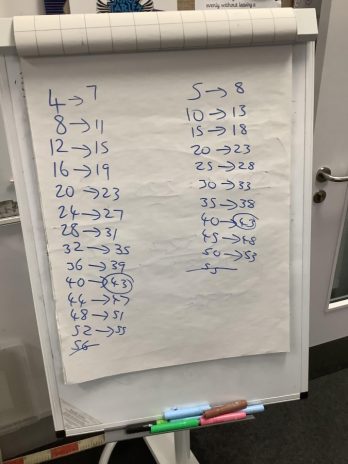 evenly without leaving a
4→7
8→11
12→15
16→19
20→23
24→27
28→31
32→35
36→39
40→43
44→47
48→51
52→55
56
5→8
10→13
15→18
20→23
25→28
30→33
35→38
40→43
45→48
50→53
55